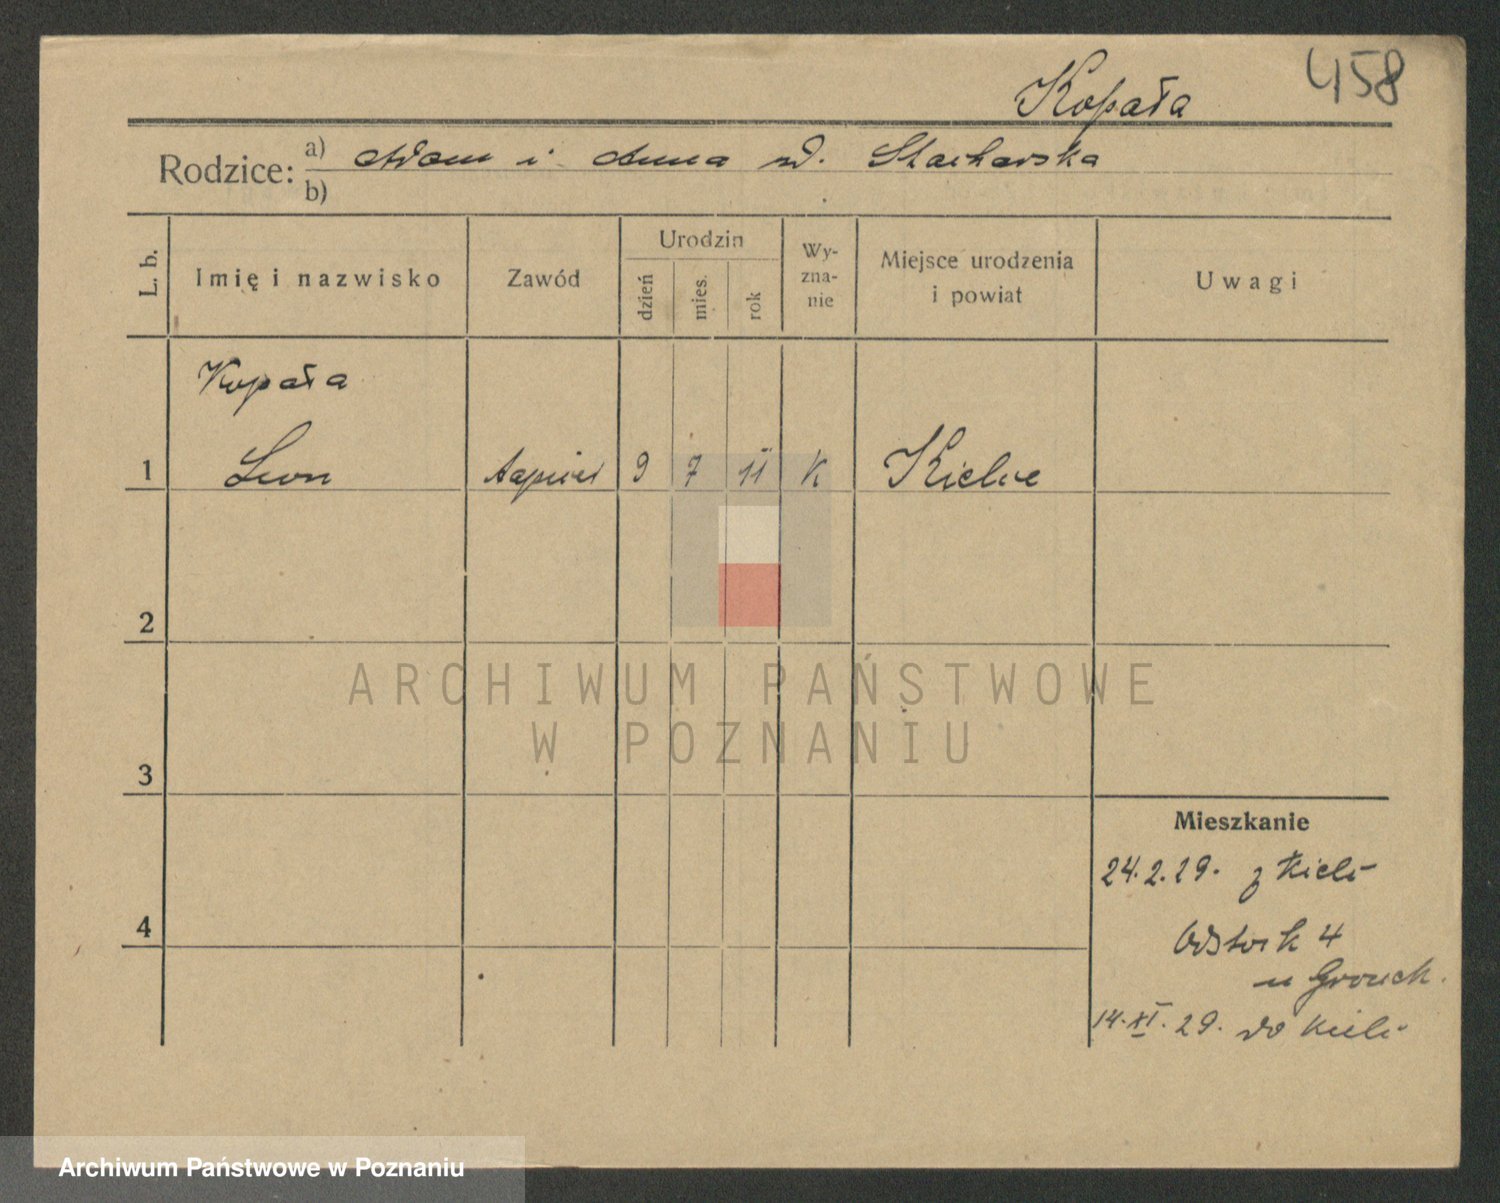 458
Kopała
Rodzice: a) Adam i Anna zd. Stacharska
b)
L. b. Imię i nazwisko Zawód Urodzin dzień mies. rok Wy-zna-nie Miejsce urodzenia i powiat Uwagi
Kopała
1 Leon 9 7 11 K Kielce
2
ARCHIWUM PAŃSTWOWE
W POZNANIU
3
Mieszkanie
24.2.29. z Kielc
4
4
u
14.XI.29. do Kielc
Archiwum Państwowe w Poznaniu